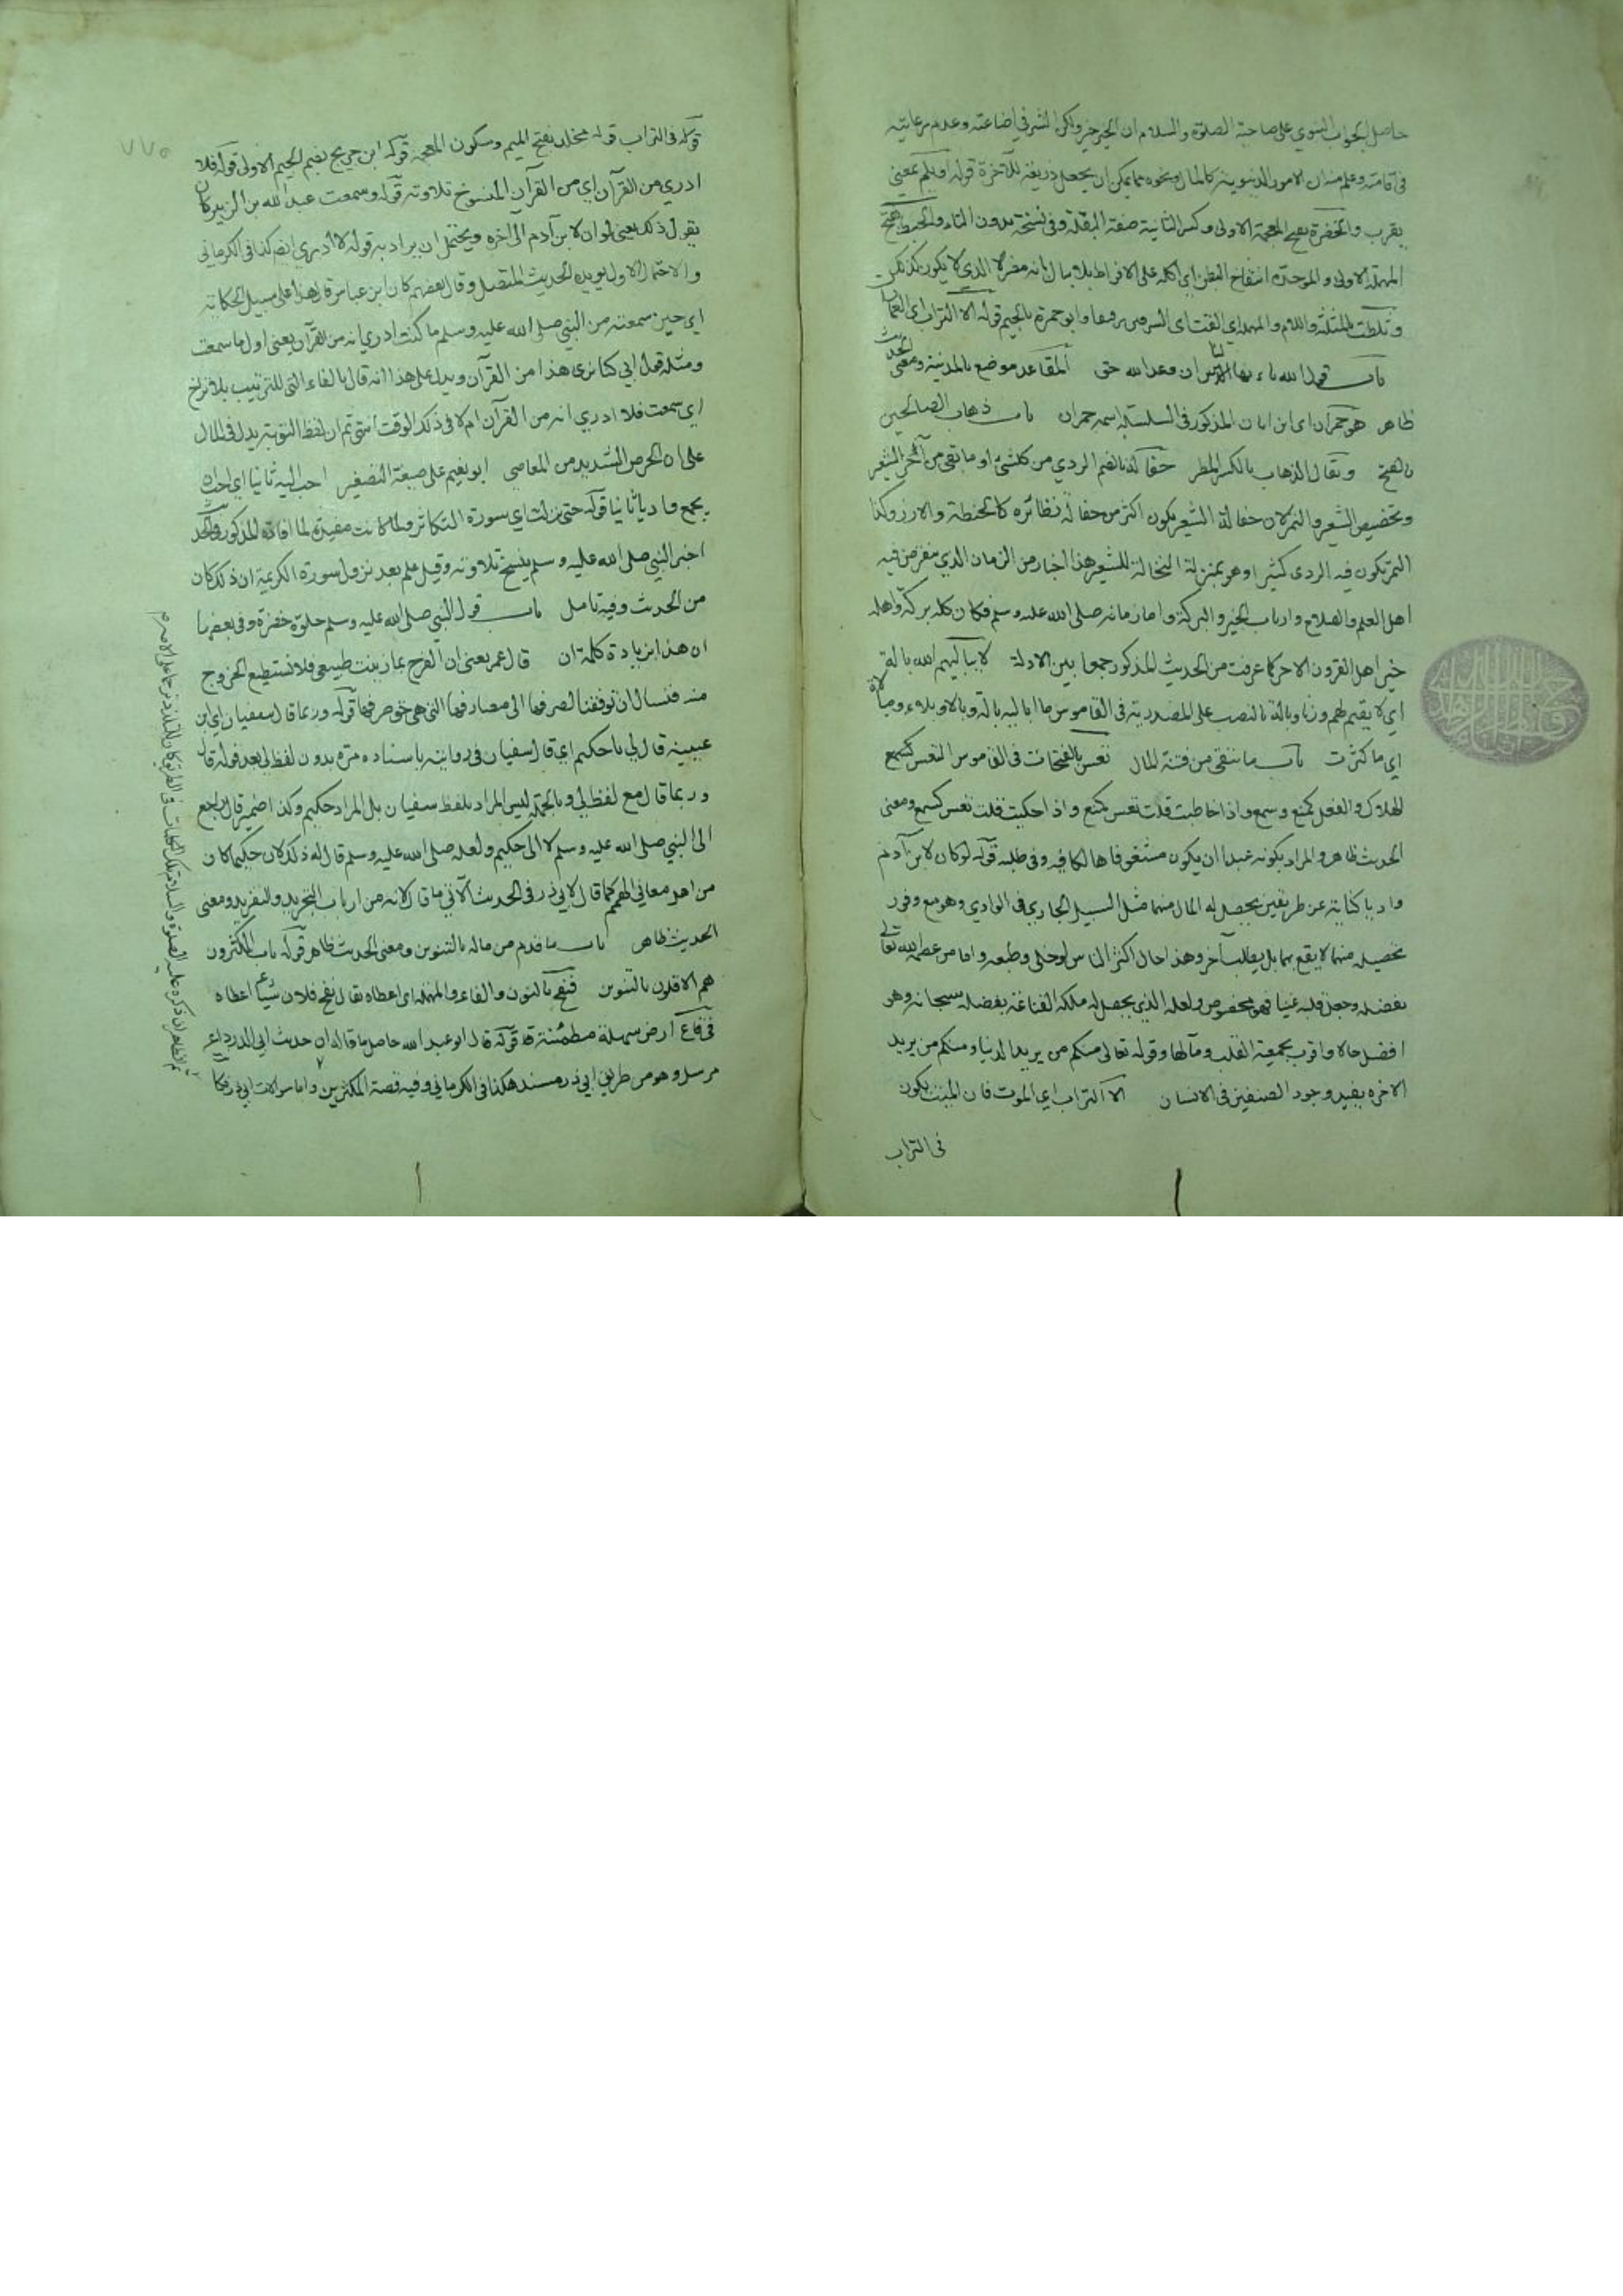 حاصل الجواب النبوي على صاحبه الصلوة والسلام ان الخير خير ولكن الشر في اضاعته وعدم رعايته
في اقامته وعلم منه ان الامور الدنيوية كالمال ونحوه مما يمكن ان يجعل ذريعة للآخرة قوله او يلم بمعنى
يقرب والخضرة بفتح المعجمة الاولى وكسر الثانية صفة البقلة وفي نسخة بدون التاء والحبط بفتح
المهملة الاولى والموحدة انتفاخ البطن اي اكله على الافراط بلا مبال بانه مضر لا الذي لا يكون كذلك
وثلطت بالمثلثة واللام والمهملة اي القت اي السرقين رقيقا وابو حمزة بالجيم قوله الا التراب اي
باب قول الله يا ايها الناس ان وعد الله حق المقاعد موضع بالمدينة ومعنى الحديث
ظاهر هو حمران اي ابن ابان المذكور في السلسلة اسمه حمران باب ذهاب الصالحين
بالفتح ويقال الذهاب بالكسر المطر حفالة بالضم الردي من كل شيء او ما بقي من آخر الشعير
وتخصيص الشعير والتمر لان حفالة الشعير يكون اكثر من حفالة نظائره كالحنطة والارز وكذا
التمر يكون فيه الردي كثيرا وهو بمنزلة النخالة للشعير هذا اخبار من الزمان الذي ينقرض فيه
اهل العلم والصلاح وارباب الخير والبركة واما زمانه صلى الله عليه وسلم فكان كله بركة واهله
خير اهل القرون الاخر كما عرفت من الحديث المذكور جمعا بين الادلة لا يباليهم الله بالة
اي لا يقيم لهم وزنا وبالة بالنصب على المصدرية في القاموس ما اباليه بالة وبالا وبلاء ومبالاة
اي ما كثرت باب ما يتقى من فتنة المال تعس بالفتحات في القاموس التعس كسمع
الهلاك والفعل كمنع وسمع واذا خاطبت قلت تعس كمنع واذا حكيت قلت تعس كسمع ومعنى
الحديث ظاهر والمراد بكونه عبدا ان يكون مشغوفا هالكا فيه وفي طلبه قوله لو كان لابن آدم
واديا كناية عن طريقين يحصل له المال منهما مثل السيل الجاري في الوادي وهو مع وفور
تحصيله منهما لا يقنع بهما بل يطلب آخر وهذا حال اكثر الناس لو خلي وطبعه واما من عصمه الله تعالى
بفضله وجعل قلبه غنيا فهو مخصوص ولعله الذي يحصل له ملكة القناعة بفضله سبحانه وهو
افضل حالا واقرب بجمعية القلب ومآلها وقوله تعالى منكم من يريد الدنيا ومنكم من يريد
الاخرة يفيد وجود الصنفين في الانسان الا التراب اي الموت فان الميت يكون
في التراب
قوله في التراب قوله مخلد بفتح الميم وسكون المعجمة قوله ابن جريج بضم الجيم الاولى قوله فلا
ادري من القرآن اي من القرآن المنسوخ تلاوته قوله وسمعت عبد الله بن الزبير كان
يقول ذلك يعني لو ان لابن آدم الى آخره ويحتمل ان يراد به قوله لا ادري ايضا كذا في الكرماني
والاحتمال الاول يؤيده الحديث المتصل وقال بعضهم كان ابن عباس قال هذا على سبيل الحكاية
اي حين سمعته من النبي صلى الله عليه وسلم ما كنت ادري انه من القرآن يعني اول ما سمعت
ومثله قول ابي كنا نرى هذا من القرآن ويدل على هذا انه قال بالفاء التي للترتيب بلا تراخ
اي سمعت فلا ادري انه من القرآن ام لا في ذلك الوقت انتهى ثم ان لفظ التوبة يدل في المال
على ان الحرص الشديد من المعاصي ابو نعيم على صيغة التصغير احب اليه ثانيا اي احب ان
يجمع واديا ثانيا قوله حتى نزلت اي سورة التكاثر ولما كانت مفيدة لما افاده المذكور
اخبر النبي صلى الله عليه وسلم بنسخ تلاوته وقيل علم بعد نزول سورة الكريمة ان ذلك كان
من الحديث وفيه تامل باب قول النبي صلى الله عليه وسلم حلوة خضرة وفي بعضها
ان هذا بزيادة كلمة ان قال عمر يعني ان الفرح بما زينت طبيعي فلا نستطيع الخروج
منه فنسال ان توفقنا لصرفها الى مصارفها التي هي خوصرفها قوله وربما قال سفيان اي ابن
عيينة قال لي يا حكيم اي قال سفيان في روايته باسناده مرة بدون لفظ لي بعد قوله قال
وربما قال مع لفظ لي وبالجملة ليس المراد بلفظ سفيان بل المراد حكيم وكذا ضمير قال راجع
الى النبي صلى الله عليه وسلم لا الى حكيم ولعله صلى الله عليه وسلم قال له ذلك لان حكيما كان
من اهل معاني الهمم كما قال لابي ذر في الحديث الآتي ما قال لانه من ارباب التجريد والتفريد ومعنى
الحديث ظاهر باب ما قدم من ماله بالتنوين ومعنى الحديث ظاهر قوله باب المكثرون
هم الاقلون بالتنوين فنفح بالنون والفاء والمهملة اي اعطاه يقال نفح فلان شيئا اي اعطاه
في قاع ارض سهلة مطمئنة قوله قال ابو عبد الله حاصل ما قاله ان حديث ابي الدرداء
مرسل وهو من طريق ابي ذر مسند هكذا في الكرماني وفيه قصة المكثرين واما سوالات ابي ذر
الظاهر ان ذكره عليه الصلوة والسلام تلك الكلمات في الطريق كان
٧٧٥